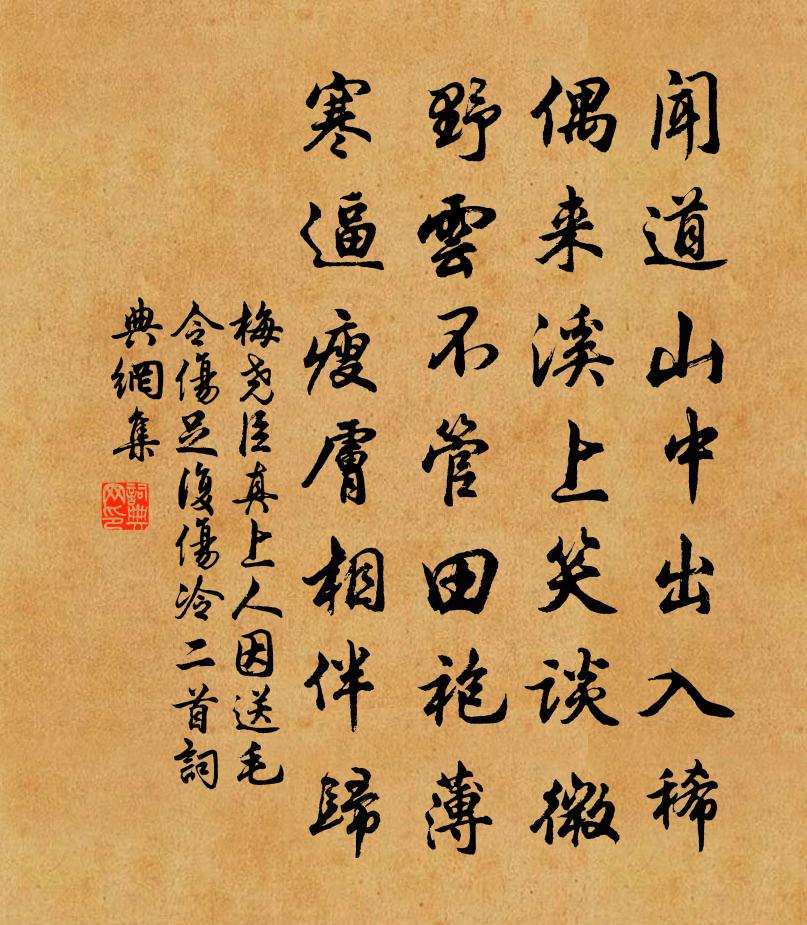 闻道山中出入稀
偶来溪上笑谈微
野雲不管田袍薄
寒逼瘦膚相伴歸
梅尧臣真上人因送毛
令傷足復傷冷二首詞
典網集
詞典